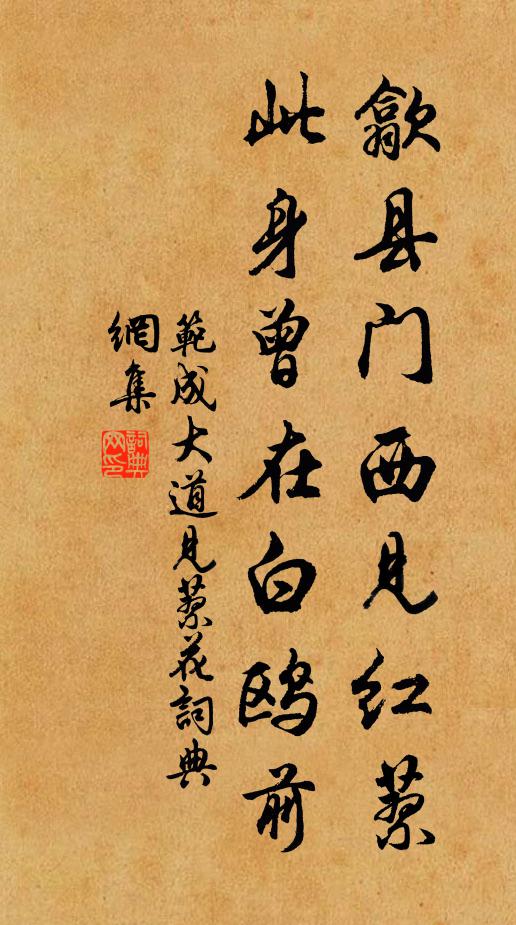 歙县门西见红蓼
此身曾在白鸥前
範成大道见蓼花詞典
網集
詞典
网印